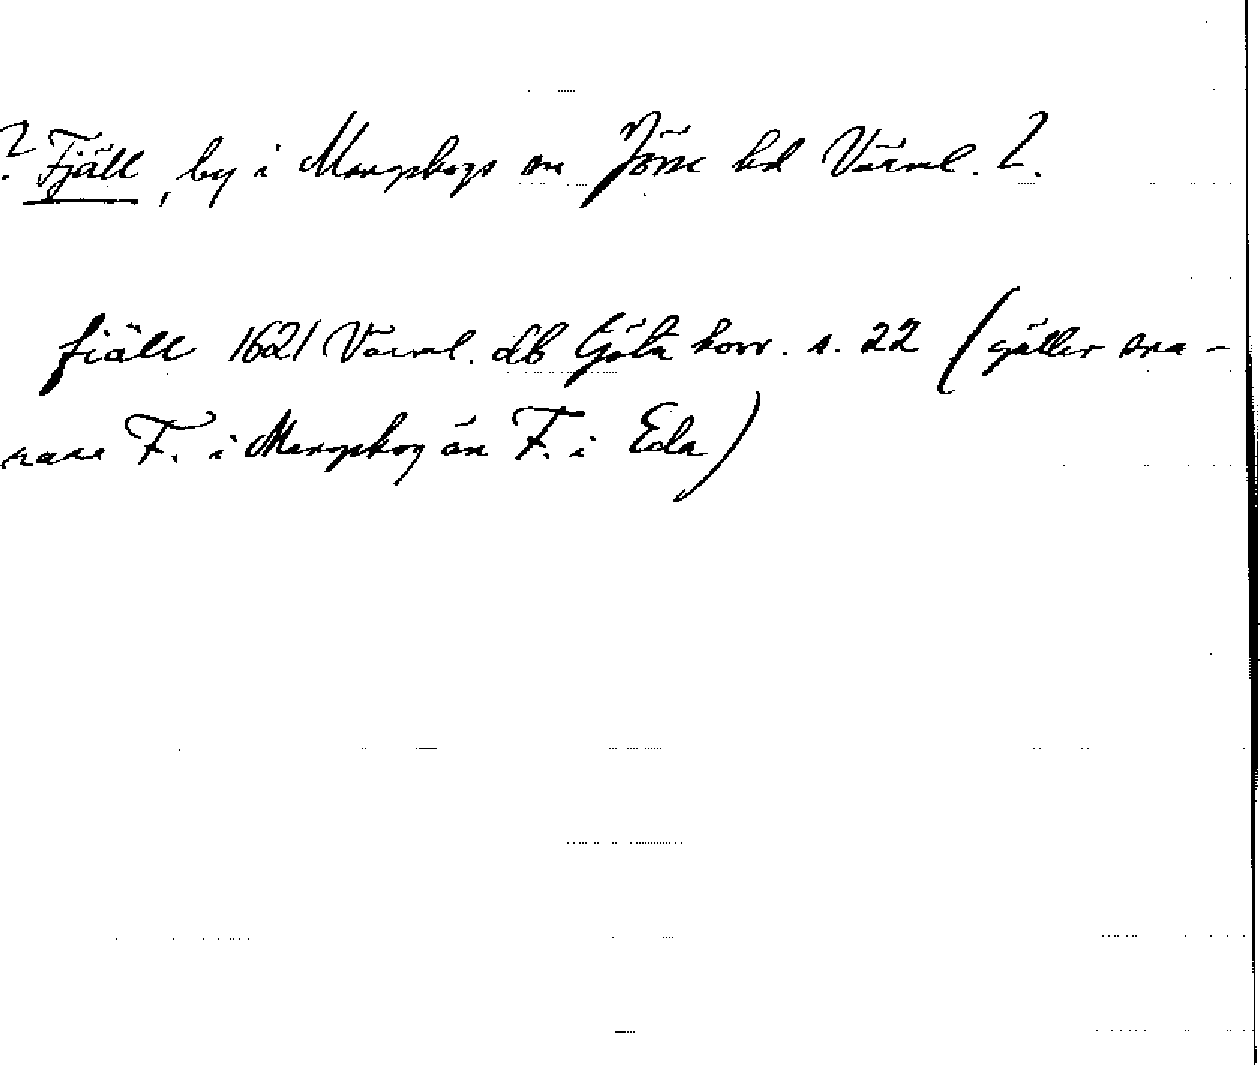 ? Fjäll, by i Mangskogs sn Jösse hd Värml. ?.
fiäll 1621 Värml. db Göta hovr. s. 22 (gäller sna-
rare F. i Mangskog än F. i Eda)